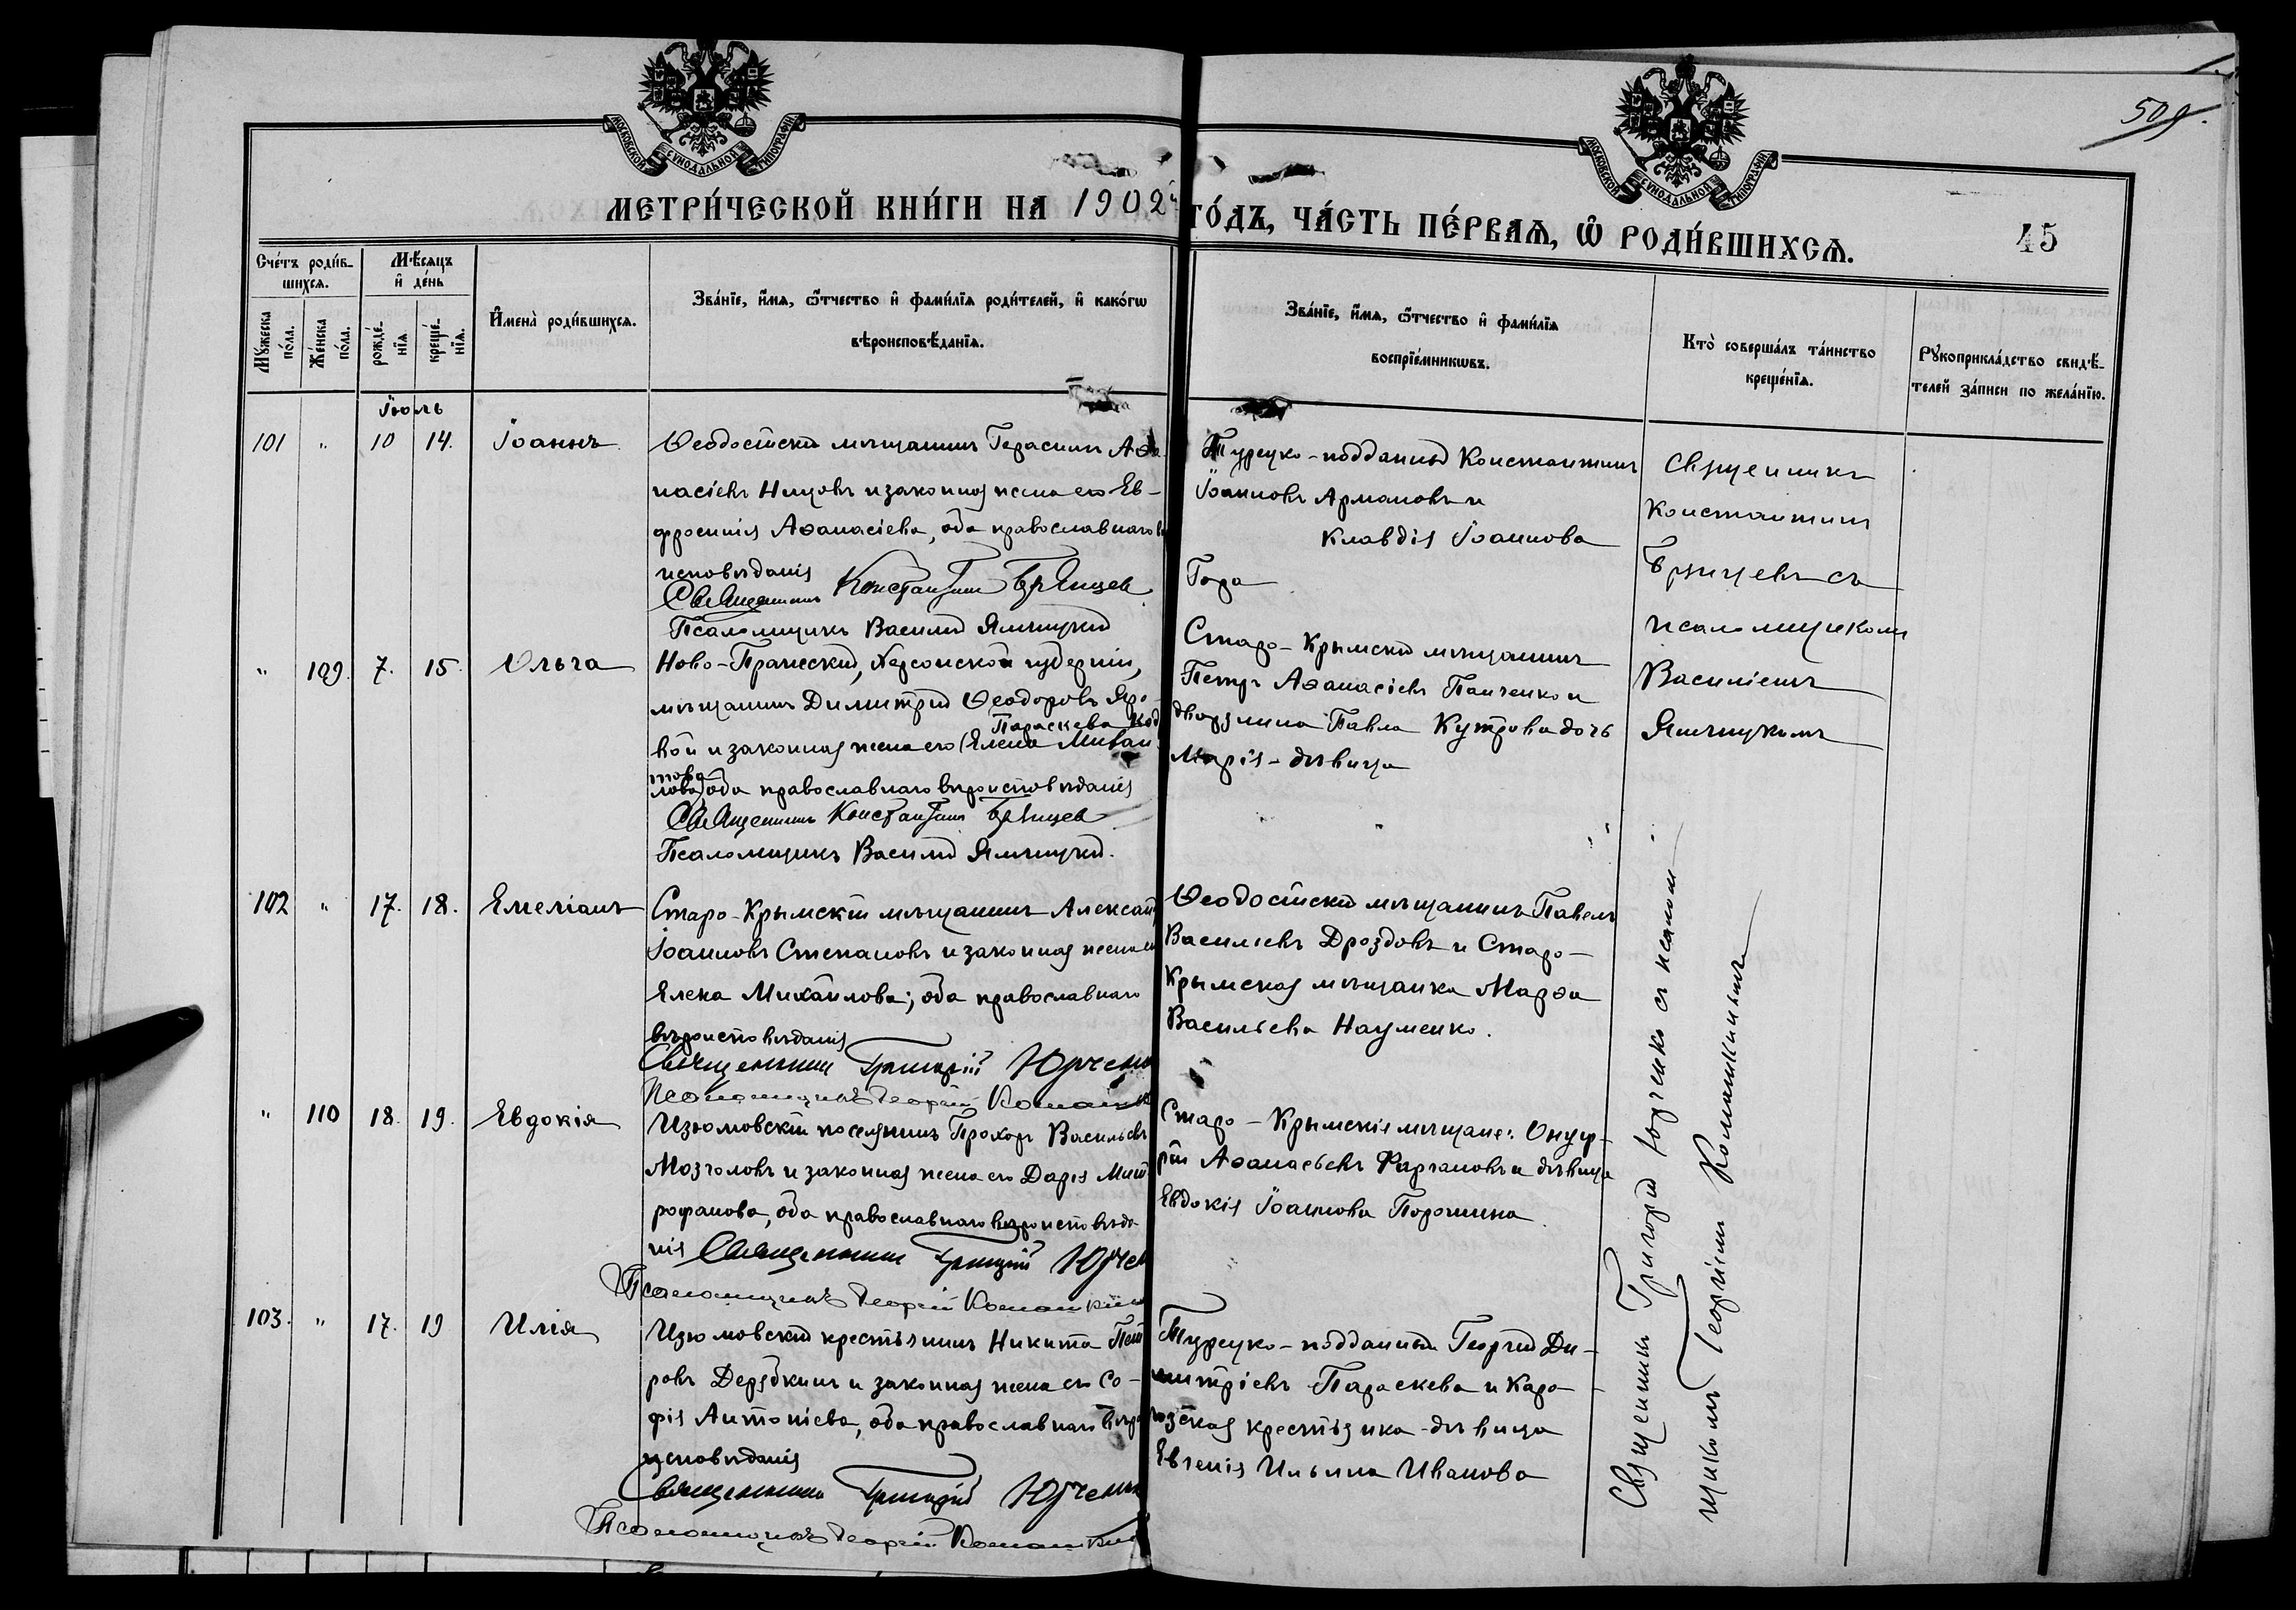 509.
МОСКОВСКОЙ СѴНОДАЛЬНОЙ ТИПОГРАФІИ
МОСКОВСКОЙ СѴНОДАЛЬНОЙ ТИПОГРАФІИ
МЕТРИ́ЧЕСКОЙ КНИ́ГИ НА 1902й ГО́ДЪ, ЧА́СТЬ ПЕ́РВАѦ, Ѽ РОДИ́ВШИХСѦ.
45
Сче́тъ роди́в-
шихсѧ.
Мѣ́сѧцъ
и҆ де́нь
Мꙋ́жеска
по́ла.
Же́нска
по́ла.
рожде́-
нїѧ
креще́-
нїѧ.
И҆мена̀ роди́вшихсѧ.
Зва́нїе, и҆́мѧ, ѻ҆́тчество и҆ фами́лїѧ роди́телей, и҆ како́гѡ
вѣроисповѣ́данїѧ.
Зва́нїе, и҆́мѧ, ѻ҆́тчество и҆ фами́лїѧ
воспрїе́мникѡвъ.
Кто̀ соверша́лъ та́инство
креще́нїѧ.
Рꙋкоприкла́дство свидѣ́-
телей за́писи по жела́нїю.
Іюль
101 " 10 14. Іоаннъ
Ѳеодосійскій мѣщанинъ Герасимъ Аѳа-
насіевъ Ницовъ и законная жена его Ев-
фросинія Аѳанасіева, оба православнаго
исповѣданія
Священникъ Константинъ Брянцев
Псаломщикъ Василій Ямницкій
Турецко-подданный Константинъ
Іоанновъ Армановъ и
Клавдія Іоаннова
Гора
Священникъ
Константинъ
Брянцевъ съ
псаломщикомъ
Василіемъ
Ямницкимъ
" 109. 7. 15. Ольга
Ново-Пражский, Херсонской губерніи,
мѣщанинъ Димитрій Ѳеодоровъ Яро-
Параскева
вой и законная жена его (Елена Михаи-
лова) оба православнаго вѣроисповѣданія
Священникъ Константинъ Брянцев
Псаломщикъ Василій Ямницкій.
Старо-Крымскій мѣщанинъ
Петръ Аѳанасіевъ Панченко и
дворянина Павла Кутрова дочь
Марія-дѣвица
102 " 17. 18. Емеліанъ
Старо-Крымскій мѣщанинъ Алексѣй
Іоанновъ Степановъ и законная жена его
Елена Михаилова; оба православнаго
вѣроисповѣданія
Священникъ Григорій Юрченко
Псаломщикъ Георгій
Ѳеодосійскій мѣщанинъ Павелъ
Василіевъ Дроздовъ и Старо-
Крымская мѣщанка Марѳа
Васильева Науменко.
Священникъ Григорій Юрченко съ псалом-
щикомъ Георгіемъ
" 110 18. 19. Евдокія
Изюмовскій поселянинъ Прохоръ Васильевъ
Мозголовъ и законная жена его Дарія Мит-
рофанова, оба православнаго вѣроисповѣда-
нія Священникъ Григорій Юрчен
Псаломщикъ Георгій
Старо-Крымскіе мѣщане: Онуф-
рій Аѳанасьевъ и дѣвица
Евдокія Іоаннова Порошина.
103. " 17. 19 Илія
Изюмовскій крестьянинъ Никита Пет-
ровъ Дерябкинъ и законная жена его Со-
фія Антоніева, оба православнаго вѣро
исповѣданія
Священникъ Григорій Юрченко
Псаломщикъ Георгій
Турецко-подданный Георгій Ди-
митріевъ Параскева и Кара-
гозская крестьянка-дѣвица
Евгенія Ильина Иванова